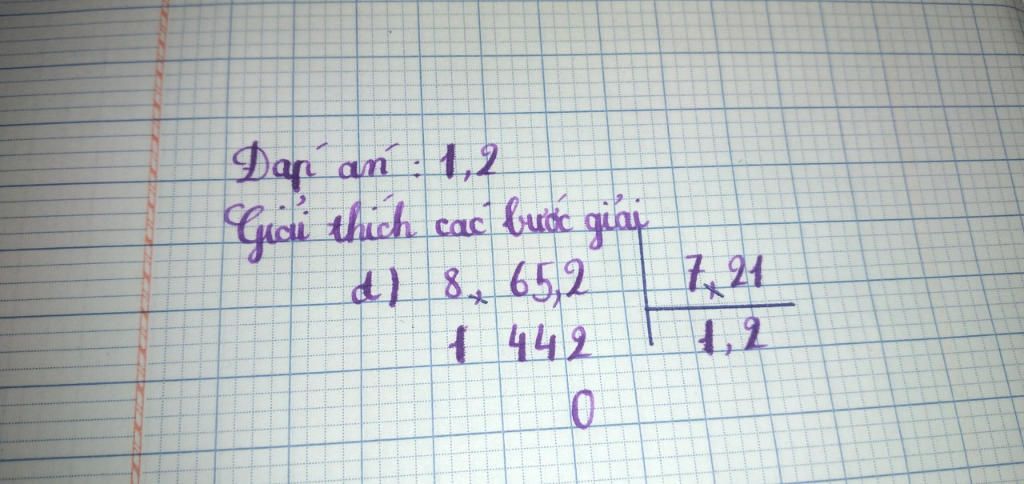 Đáp án : 1,2
Giải thích các bước giải
d) 8,x 65,2 7,x 21
1 442 1,2
0